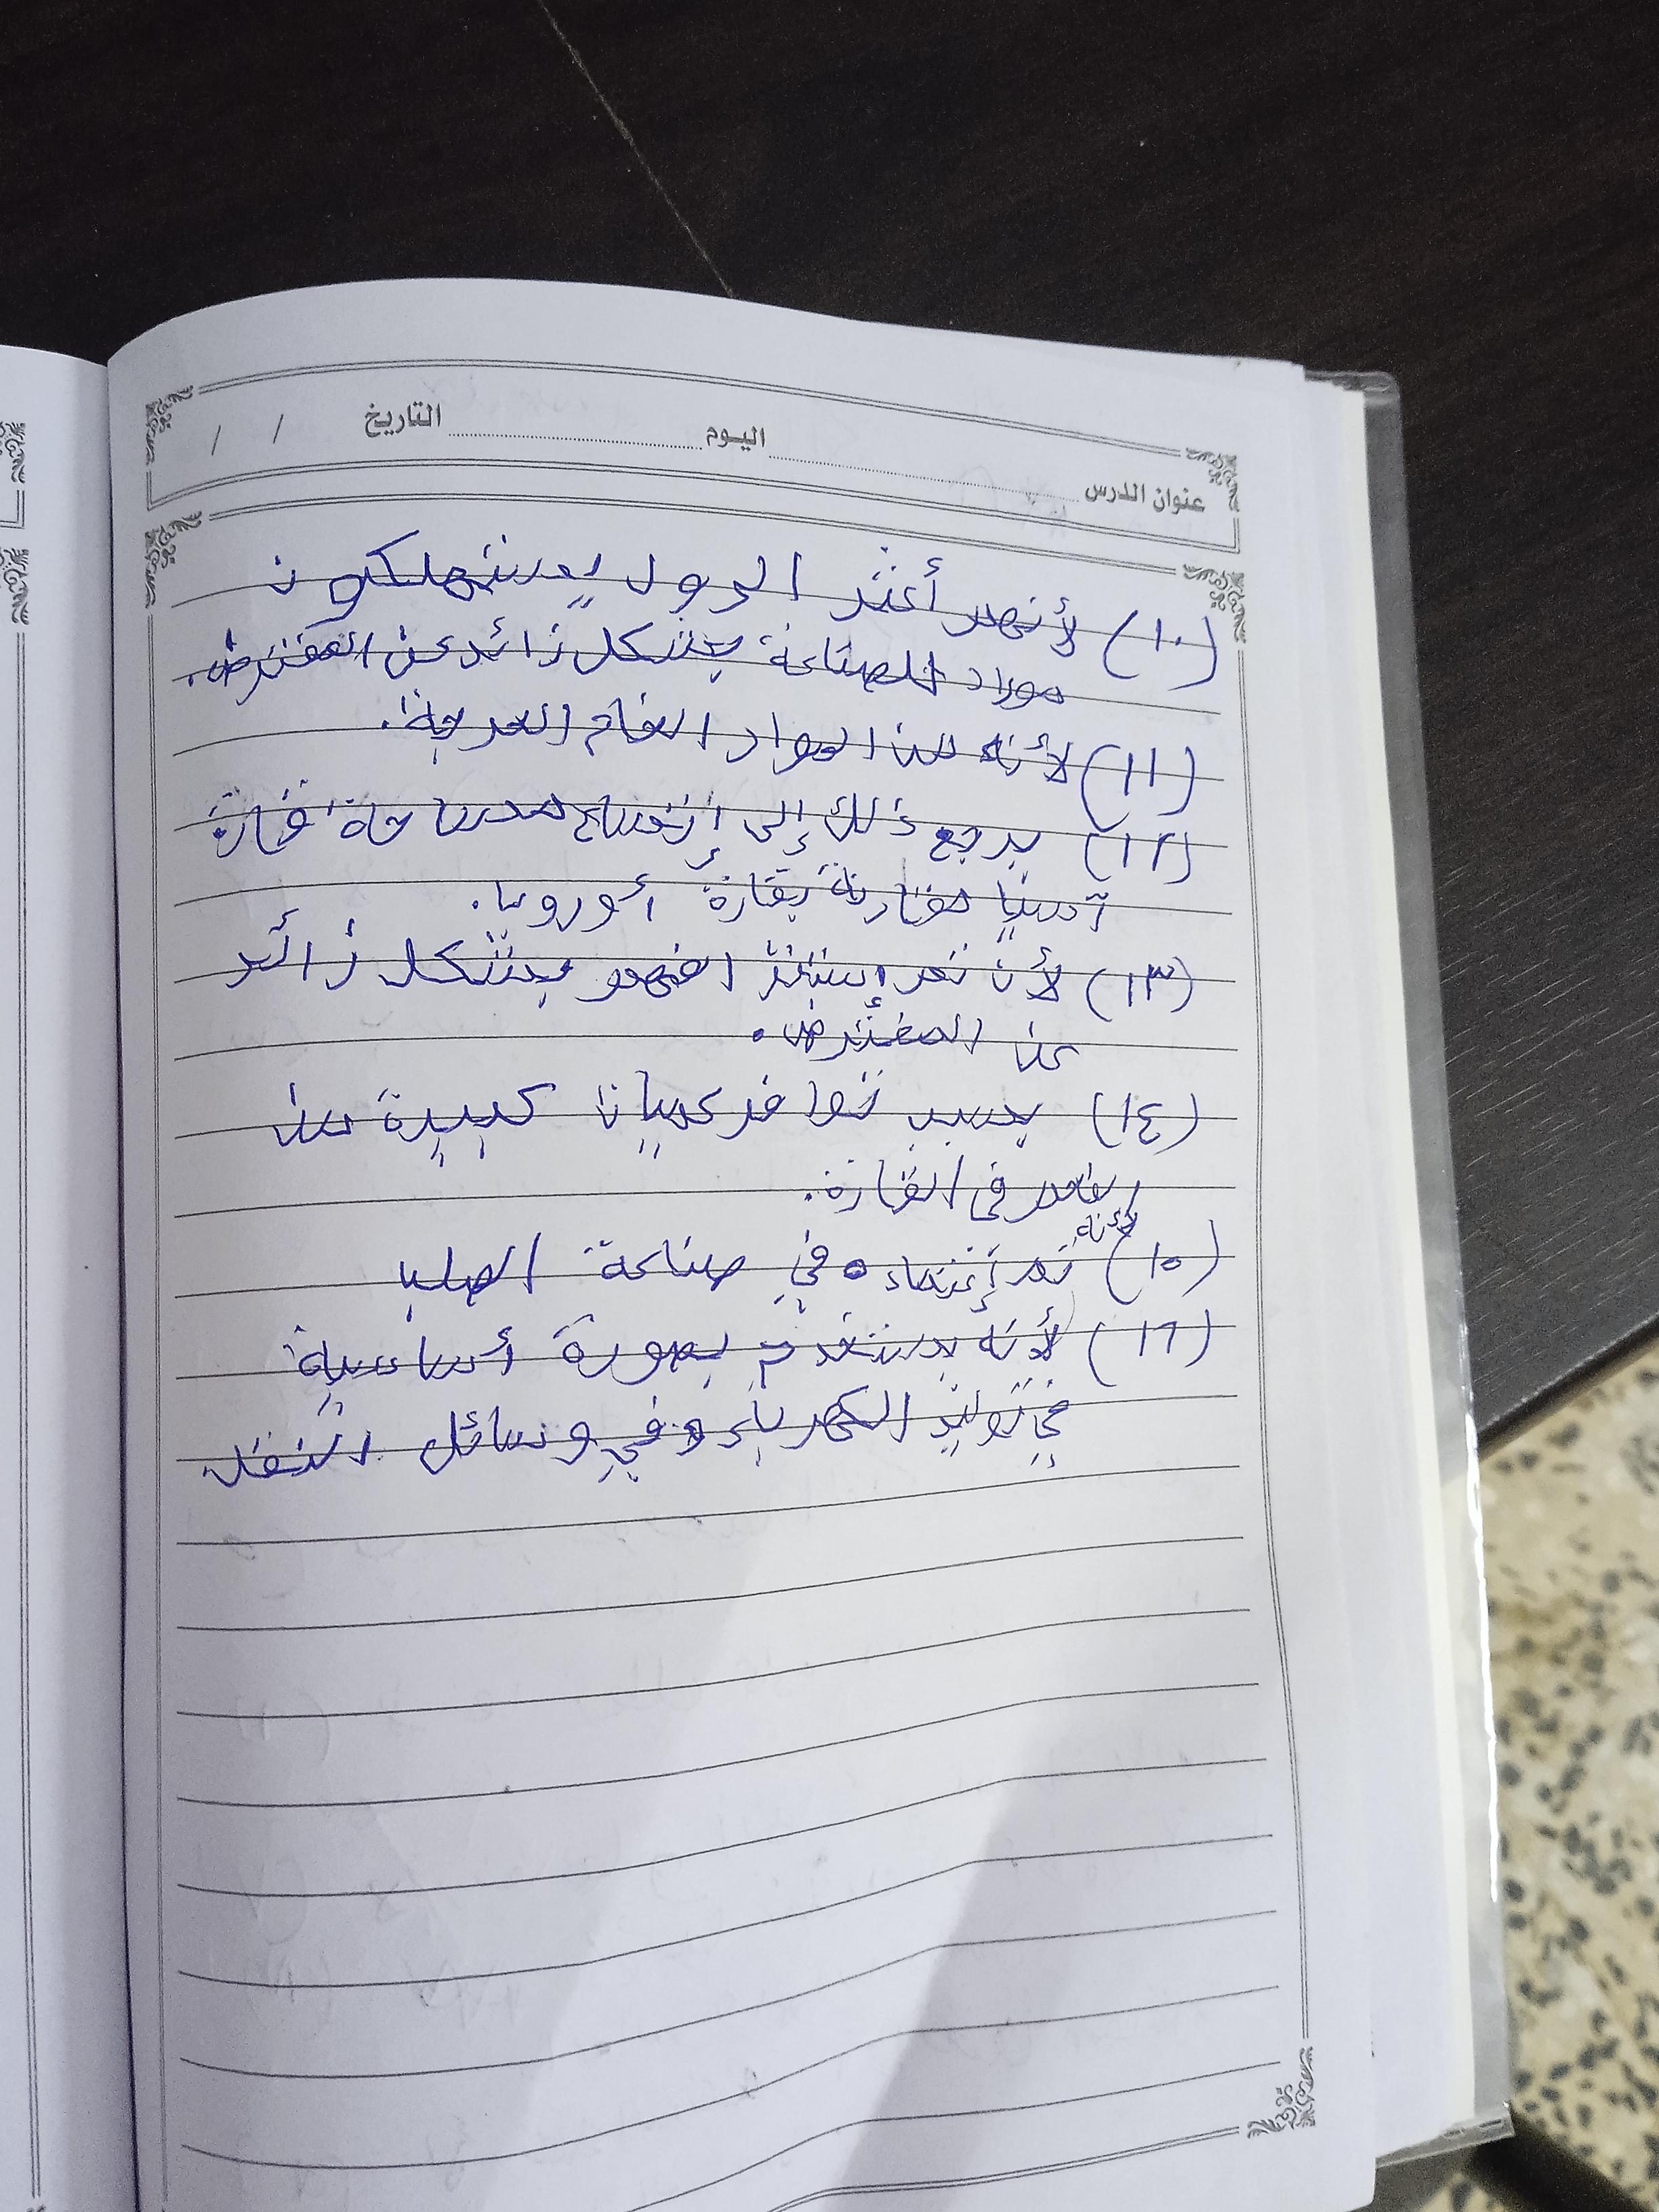 عنوان الدرس اليوم التاريخ / /
(١٠) لأنهم أغثر الدول يستهلكون
مواد للصناعة بشكل زائد عن المفترض.
(١١) لأنه من المواد الخام الحرجة.
(١٢) يرجع ذلك إلى إتساع مساحة قارة
آسيا مقارنة بقارة أوروبا.
(١٣) لأن تم الفهم بشكل زائد
عن المفترض.
(١٤) بسبب توافر كميات كبيرة من
الخام في القارة.
(١٥) لأنه تم في صناعة الصلب
(١٦) لأنه يستخدم بصورة أساسية
في توليد الكهرباء وفي وسائل النقل